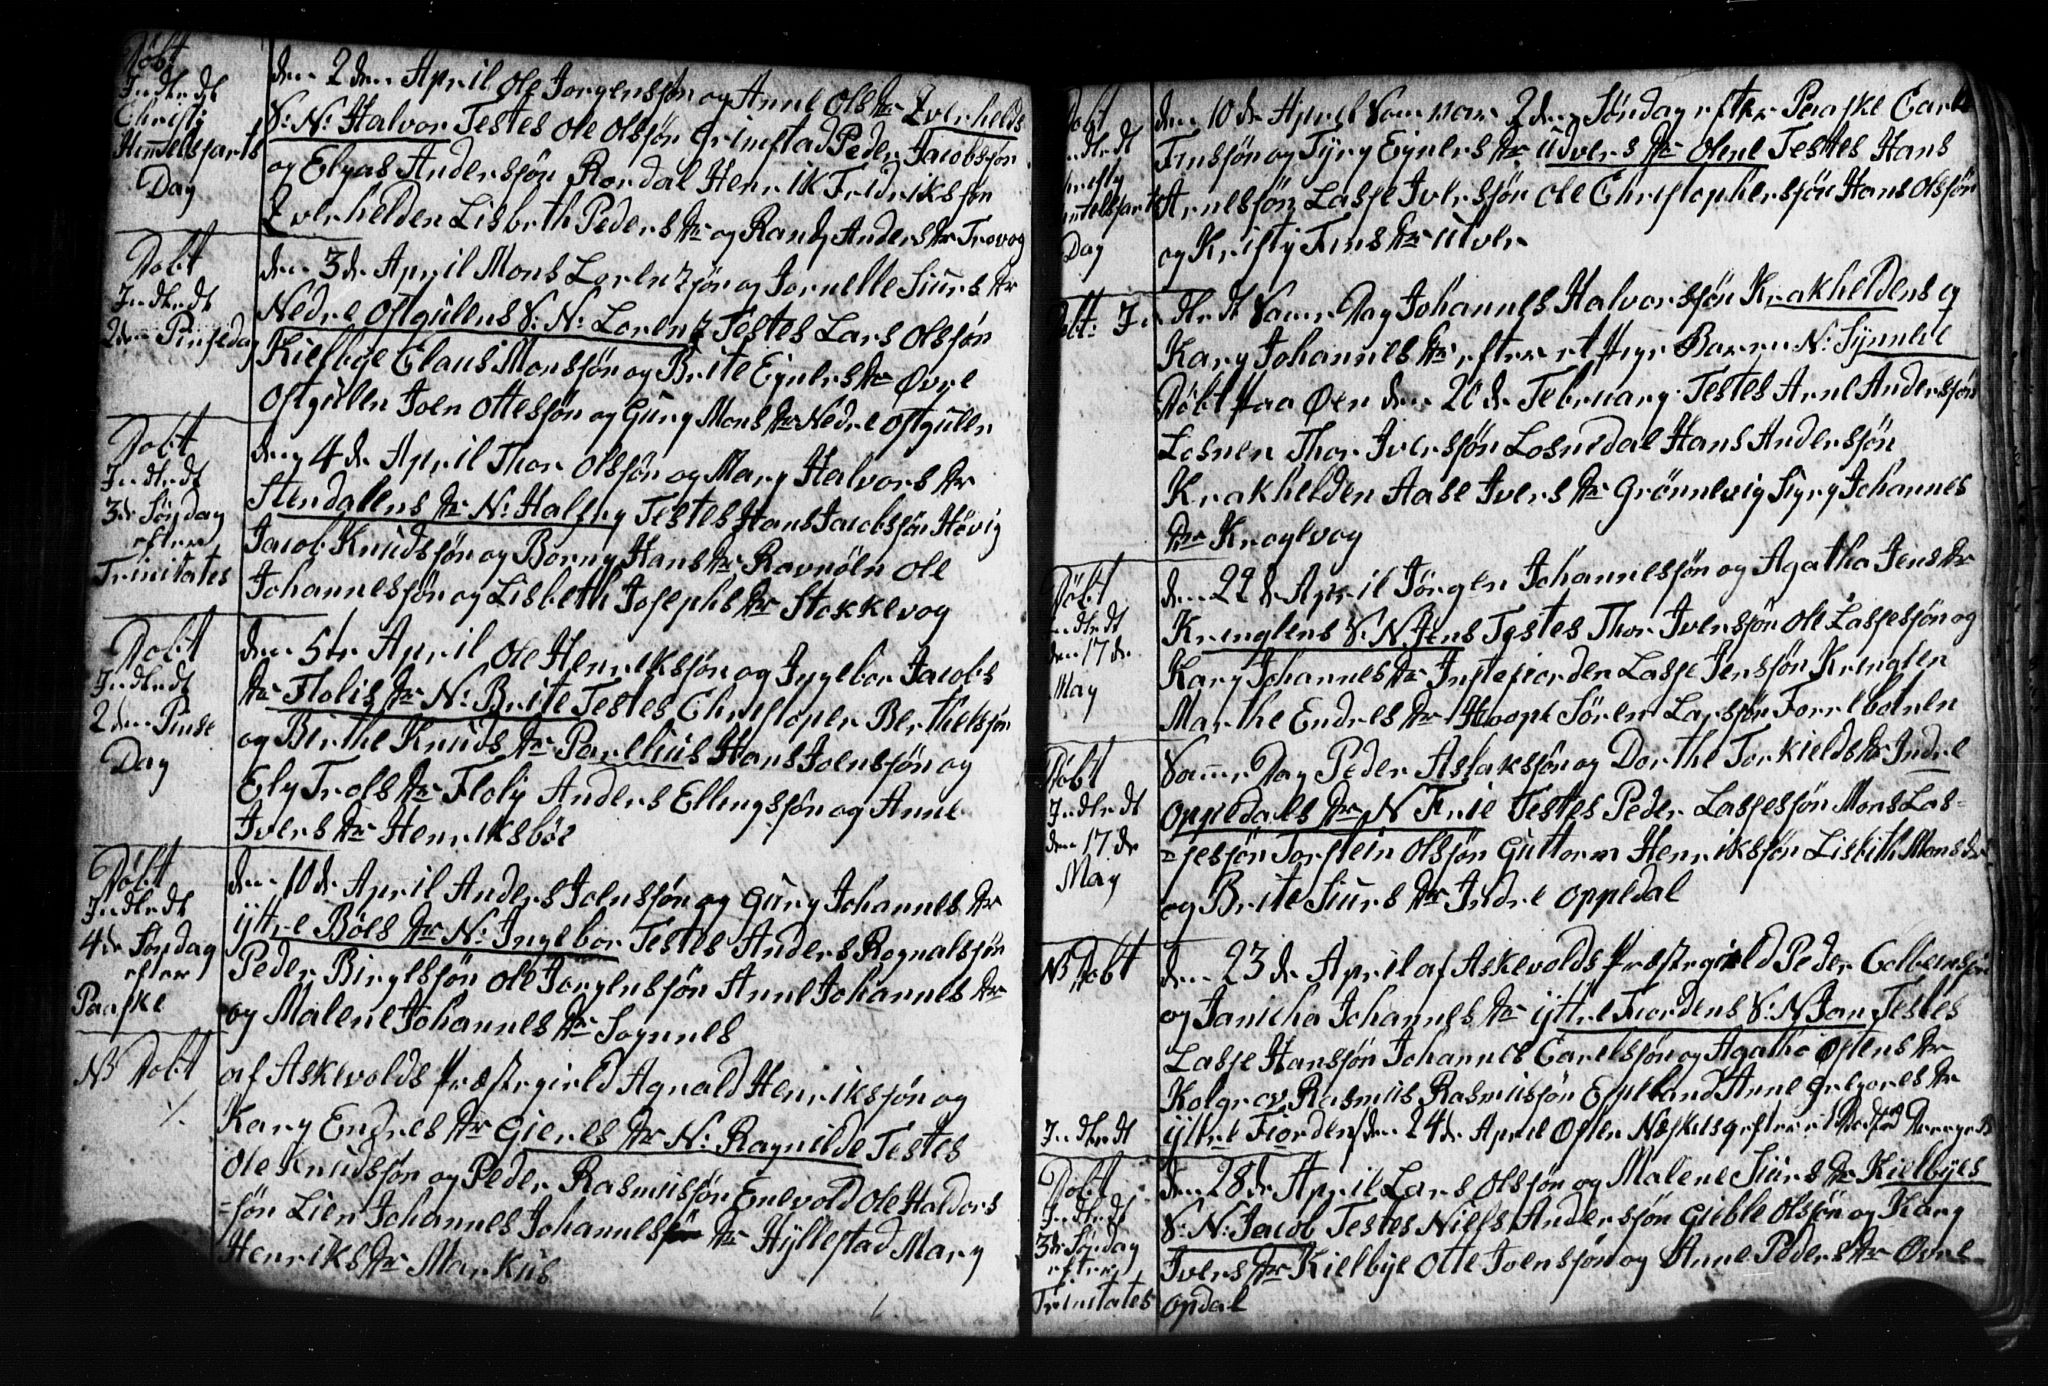 Døbt
Indledt
Christi
Himelsfarts
Dag
den 2den April Ole Jorgensøn og Anne Ols dtr Tverhelds
S: N: Halvor Testes Ole Olsøn Grimstad Peder Jacobsøn
og Elyas Andersøn Rordal Henrik Fridriksøn
Tverhelden Lisbeth Peders dtr og Randy Anders dtr Trovog
Døbt
Indledt
2den Pinsedag
den 3de April Mons Lorentzøn og Jornelle Siurs dtr
Nedre Ostgulens S: N: Lorentz Testes Lars Olsøn
Kielbye Claus Monsøn og Brite Eyners dtr Øvre
Ostgulen Joen Ottesøn og Gury Mons dtr Nedre Ostgulen
Døbt
Indledt
3de Søndag
efter
Trinitates
den 4de April Thor Olsøn og Mary Halvors dtr
Stendalens dtr N: Halfry Testes Hans Jacobsøn Høvig
Jacob Knudsøn og Borny Hans dtr Ravnøen Ole
Johannesøn og Lisbeth Josephs dtr Stokkevog
Døbt
Indledt
2den Pinse
Dag
den 5te April Ole Henriksøn og Ingebor Jacobs
dtr Flolis dtr N: Brite Testes Christoper Berthelsøn
og Birthe Knuds dtr Parelius Hans Joensøn og
Ely Trols dtr Floliy Anders Ellingsøn og Anne
Ivers dtr Henriksbøe
Døbt
Indledt
4de Søndag
efter
Paaske
den 10de April Anders Joensøn og Gury Johannes dtr
ÿtre Bøes dtr N: Ingebor Testes Anders Rognalsøn
Peder Birgesøn Ole Jorgensøn Anne Johannes dtr
og Malene Johannes dtr Sognnes
NB Døbt
af Askevolds Præstegield Agnald Henriksøn og
Kary Endres dtr Gieres dtr N: Ragnilde Testes
Ole Knudsøn og Peder Rasmusøn Enevold Ole Haldors
=søn Lien Johannes Johannes dtr Hÿllestad Mary
Henriks dtr Markus
Døbt
Indledt
Christy
Himelsfarts
Dag
den 10de April Som var 2den Søndag efter Paaske Carl
Finsøn og Tyry Eyners dtr Udvers dtr Oline Testes Hans
Arnesøn Lasse Iversøn Ole Christophersøn Hans Olsøn
og Kristy Fins dtr Utver
Døbt: Indledt Same Dag Johannes Halvorsøn Krakheldens og
Kary Johannes dtr efter et Pige Barn N: Synneve
Døbt paa Øen den 20de February Testes Arne Andersøn
Losnen Thor Iversøn Losnedal Hans Andersøn
Krakhelden Aase Ivers dtr Grønnevig Syry Johannes
dtr Kragevog
Døbt
Indledt
den 17de
May
den 22de April Jørgen Johannesøn og Agatha Jens dtr
Krenglens S: N Jens Testes Thor Iversøn Ole Lassesøn og
Kary Johannes dtr Instefiorden Lasse Jensøn Krenglen
Marthe Endres dtr Hoope Søren Larsøn Forrebotnen
Døbt
Indledt
den 17de
May
Same Dag Peder Aslaksøn og Dorthe Torkields dtr Indre
Oppedals dtr N Trie Testes Peder Lassesøn Mons Las=
=sesøn Torstein Olsøn Guttorm Henriksøn Lisbith Mons dtr
og Brite Siurs dtr Indre Oppedal
NB Døbt
den 23de April af Askevolds Præstegield Peder Colbensøn
og Janicha Johannes dtr ÿtre Fiordens S: N Jan Testes
Lasse Hansøn Johannes Carelsøn og Agatha Østens dtr
Kolgrov Rasmus Rasmusøn Espeland Anne Gregores dtr
Indledt
ÿtre Fiorden den 24de April Østen
Døbt
Indledt
3de Søndag
efter
Trinitates
den 28de April Lars Olsøn og Malene Siurs dtr Kielbyes
S: N: Jacob Testes Niels Andersøn Gieble Olsøn og Kary
Ivers dtr Kielbye Otte Joensøn og Anne Peders dtr Øvre
Opdal